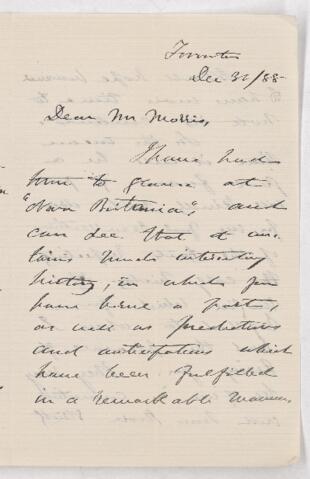 Toronto
Dec 31/88
Dear Mr Morris,
I have had
time to glance at
"Nova Britannia", and
can see that it con-
tains much interesting
history, in which you
have borne a part,
as well as predictions
and anticipations which
have been fulfilled
in a remarkable manner